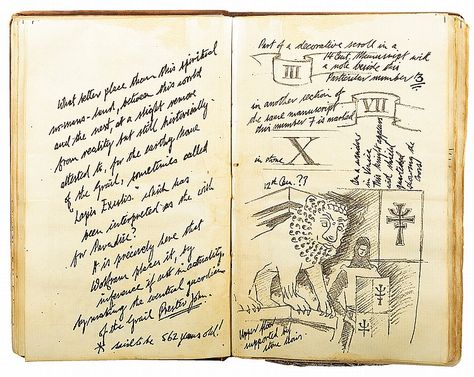 What better place than this spiritual
no-mans-land, between this world
and the next, at a slight remove
from reality but still historically
attested to, for the earthly home
of the Grail, sometimes called
'Lapis Exulis' which has
been interpreted as the wish
for Paradise?
It is precisely here that
Wolfram places it, by
inference if not in actuality,
by making the eventual guardian
of the Grail Prester John.
* said to be 562 years old!
Part of a decorative scroll in a
14 Cent. Manuscript with
a note beside this
Particular number 3
III
in another section of
the same manuscript
this number 7 is marked
VII
in stone
X
in a window
in Venice
this knight appears
shield
quartered
showing the
cross
12th Cen. ??
Upper floor
supported by
stone lions.